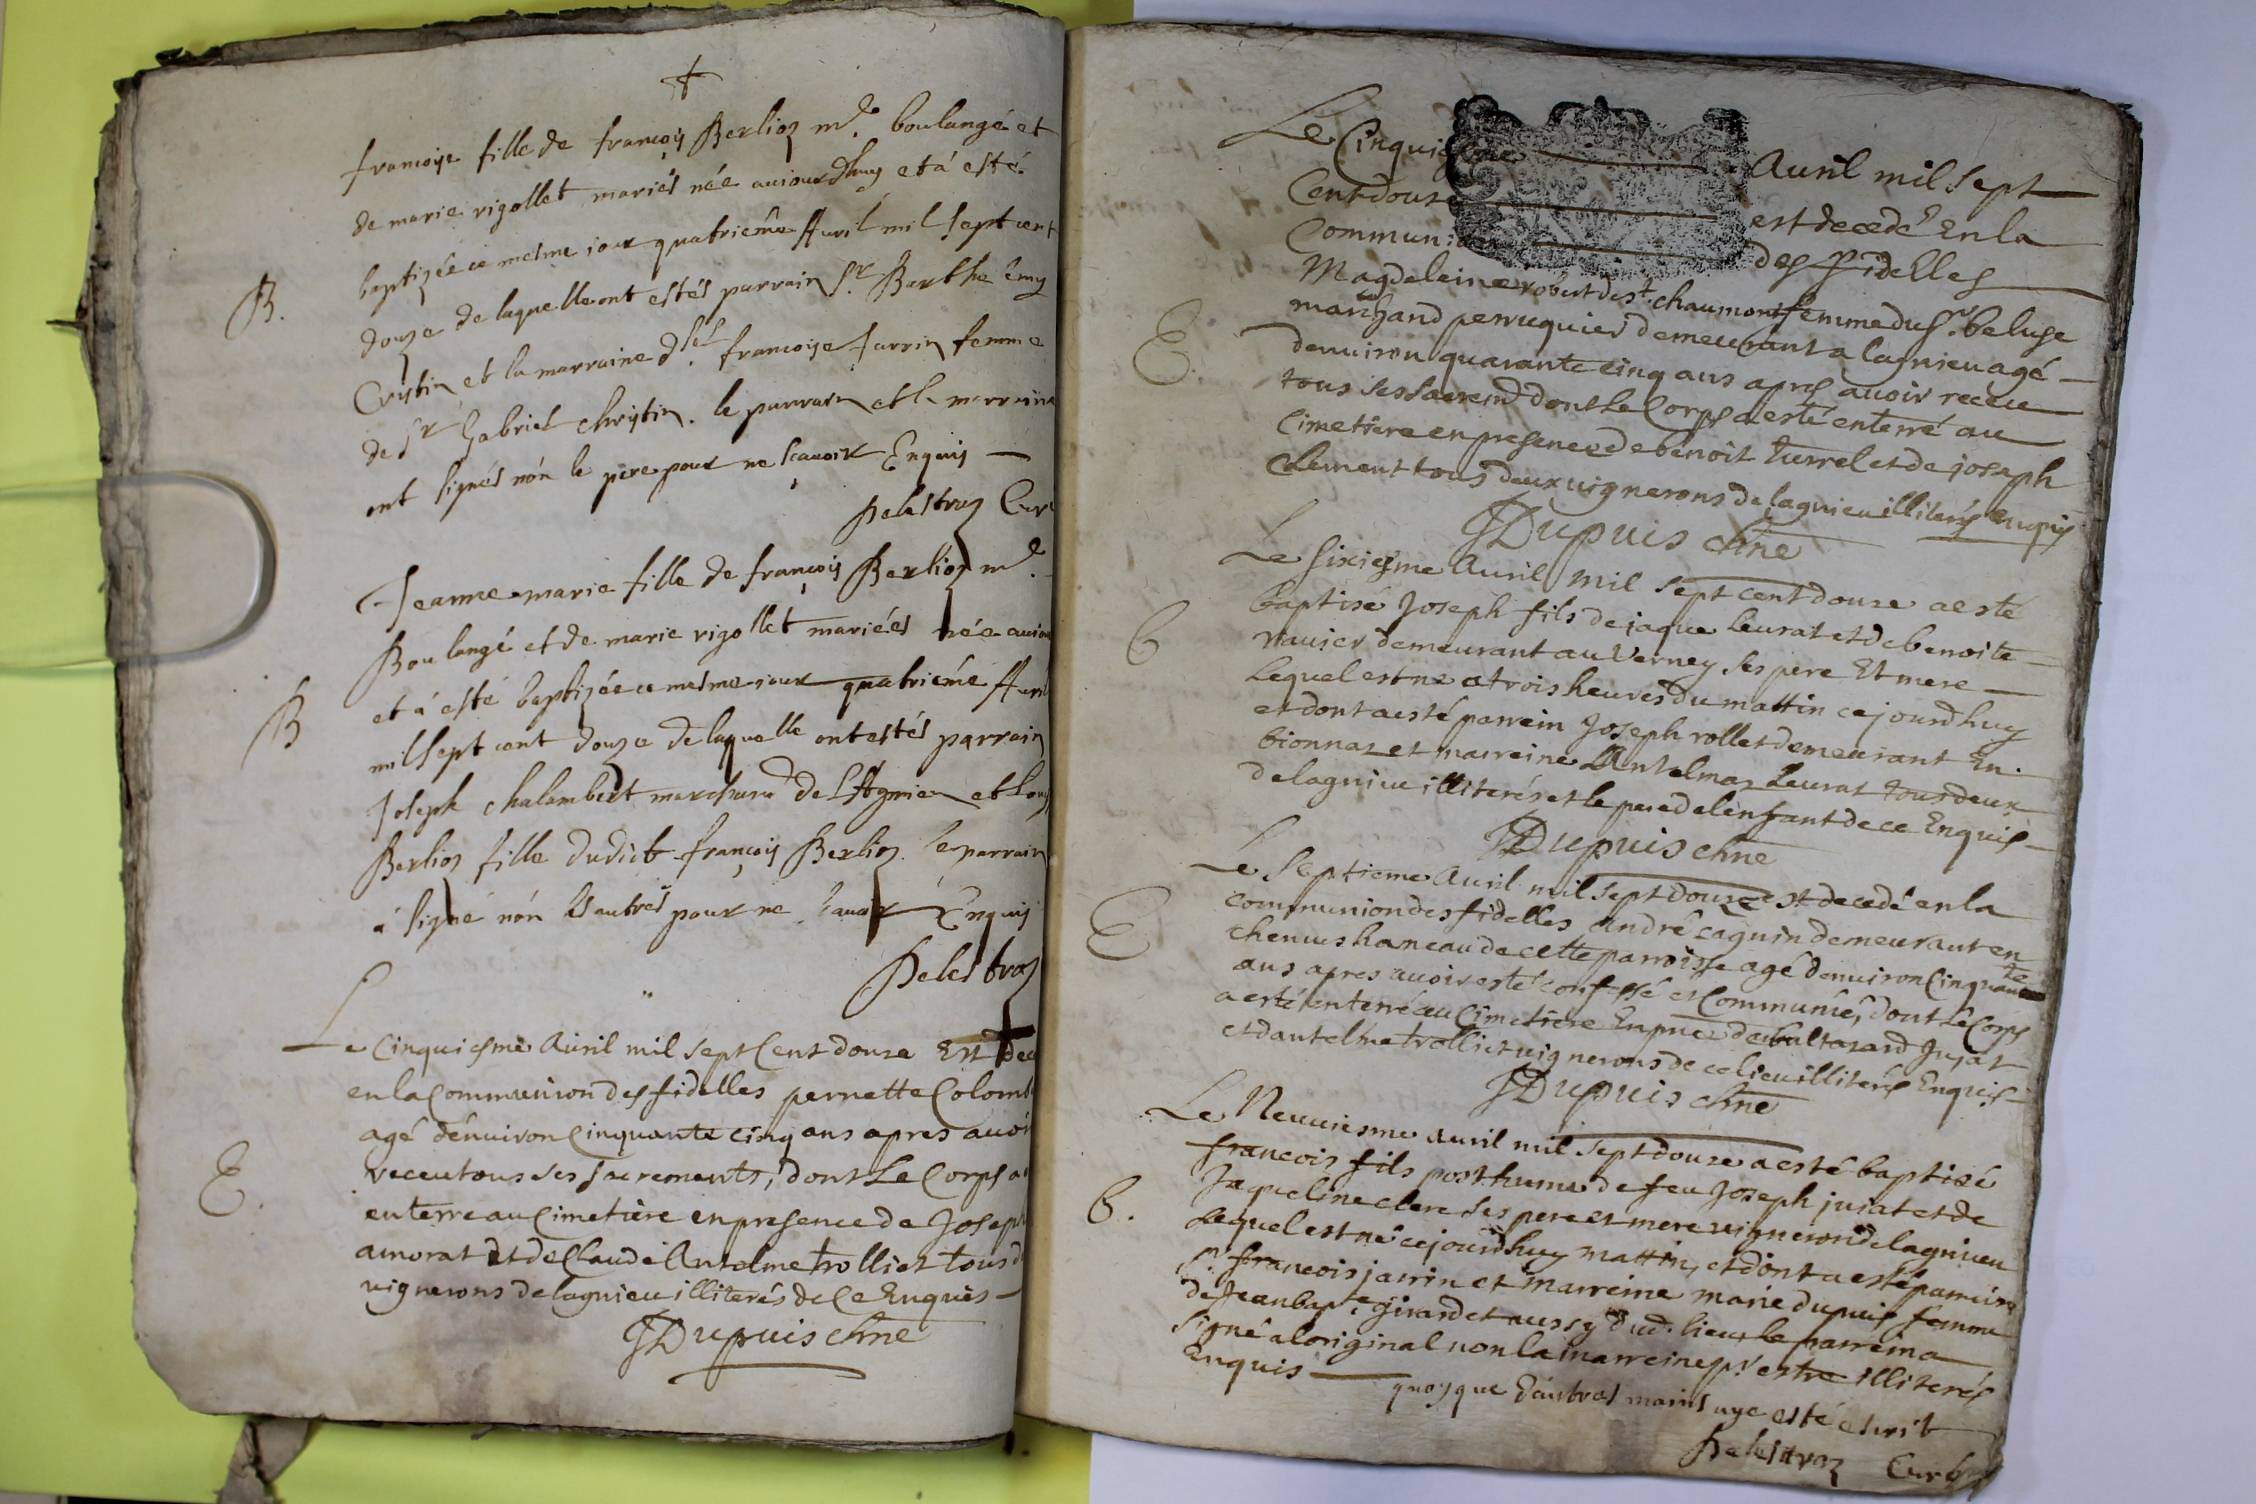 françoise fille de françois Berlioz md. boulangé et
de marie rigollet mariés née aujourdhuy et á esté
baptizée ce mesme jour quatriême Auril mil sept cent
B.
douze de laquelle ont estés parrain Sr. Barthelêmy
Cristin et la marraine dlle françoise Jurrin femme
de Sr Gabriel Christin. le parrain et la marraine
ont signés nón le pere pour ne sçauoir Enquis
Delestraz Curé
Jeanne marie fille de françois Berlioz md.
Boulangé et de marie rigollet mariées née aujour
et á esté baptizée ce mesme jour quatriéme Auril
B
mil sept cent douze de laquelle ont estés parrain
Joseph chalambert marchand de LAgnieu et
Berlioz fille dudict françois Berlioz le parrain
á signé nón les autres pour ne sçauoir Enquis
Delestraz
Le cinquiesme Auril mil sept Cent douze Est dec
en la Communion des fidelles pernette Colomb
agé dénuiron Cinquante cinq ans apres auoir
receu tous ses sacrements, dont Le Corps a
E.
enterre au Cimetiere en presence de Joseph
amorat et de Claude Antelme trolliet tous d
vignerons de lagnieu illiterés de Ce Enquis
JDupuis chne
Le Cinquiesme Auril mil sept
Cent douze est decedé En la
Communion des Fidelles
Magdeleine robert de st. chaumont femme du Sr. beluse
marchand perruquier demeurant a lagnieu agé
E.
denuiron quarante cinq ans apres auoir receu
tous ses sacremt dont Le Corps a esté enterré au
Cimetiere en presence de benoit turrel et de joseph
Clement tous deux vignerons de lagnieu illiterés enquis
JDupuis chne
Le sixiesme Auril mil sept cent douze a esté
baptisé Joseph fils de jaque leurat et de benoite
B
rauier demeurant au Verney ses pere Et mere
Lequel est ne a trois heures du mattin cejourdhuy
et dont a esté parrein Joseph rollet demeurant En
bionnas et marreine Antelmaz Leurat tous deux
de lagnieu illiterés et le pere de lénfant de ce Enquis
JDupuis chne
Le Septieme Auril mil sept douze est decedé en la
communion des fidelles André caguin demeurant en
E
chenues hameau de cette parroisse agé denuiron Cinquante
ans apres auoir esté confessé et Communié, dont Le Corps
a esté enterré au Cimetiere En pnce de baltazard Jujat
et dantelme trolliet vignerons de ce lieu illiterés Enquis
JDupuis chne
Le Neuuiesme Auril mil sept douze a esté baptisé
francois fils posthume de feu Joseph jujat et de
Jaqueline clerc ses pere et mere vigneron de lagnieu
B.
Lequel est né cejourdhuy mattin, et dont a esté parrein
Sr. francois jarrin et marreine marie dupuis femme
de Jean bapte girard et aussy dud. lieu, le parrein a
signé a loriginal non la marreine pr estre illiterés
Enquis
quoyque dautres mains aye esté escrit
Delestraz Curé